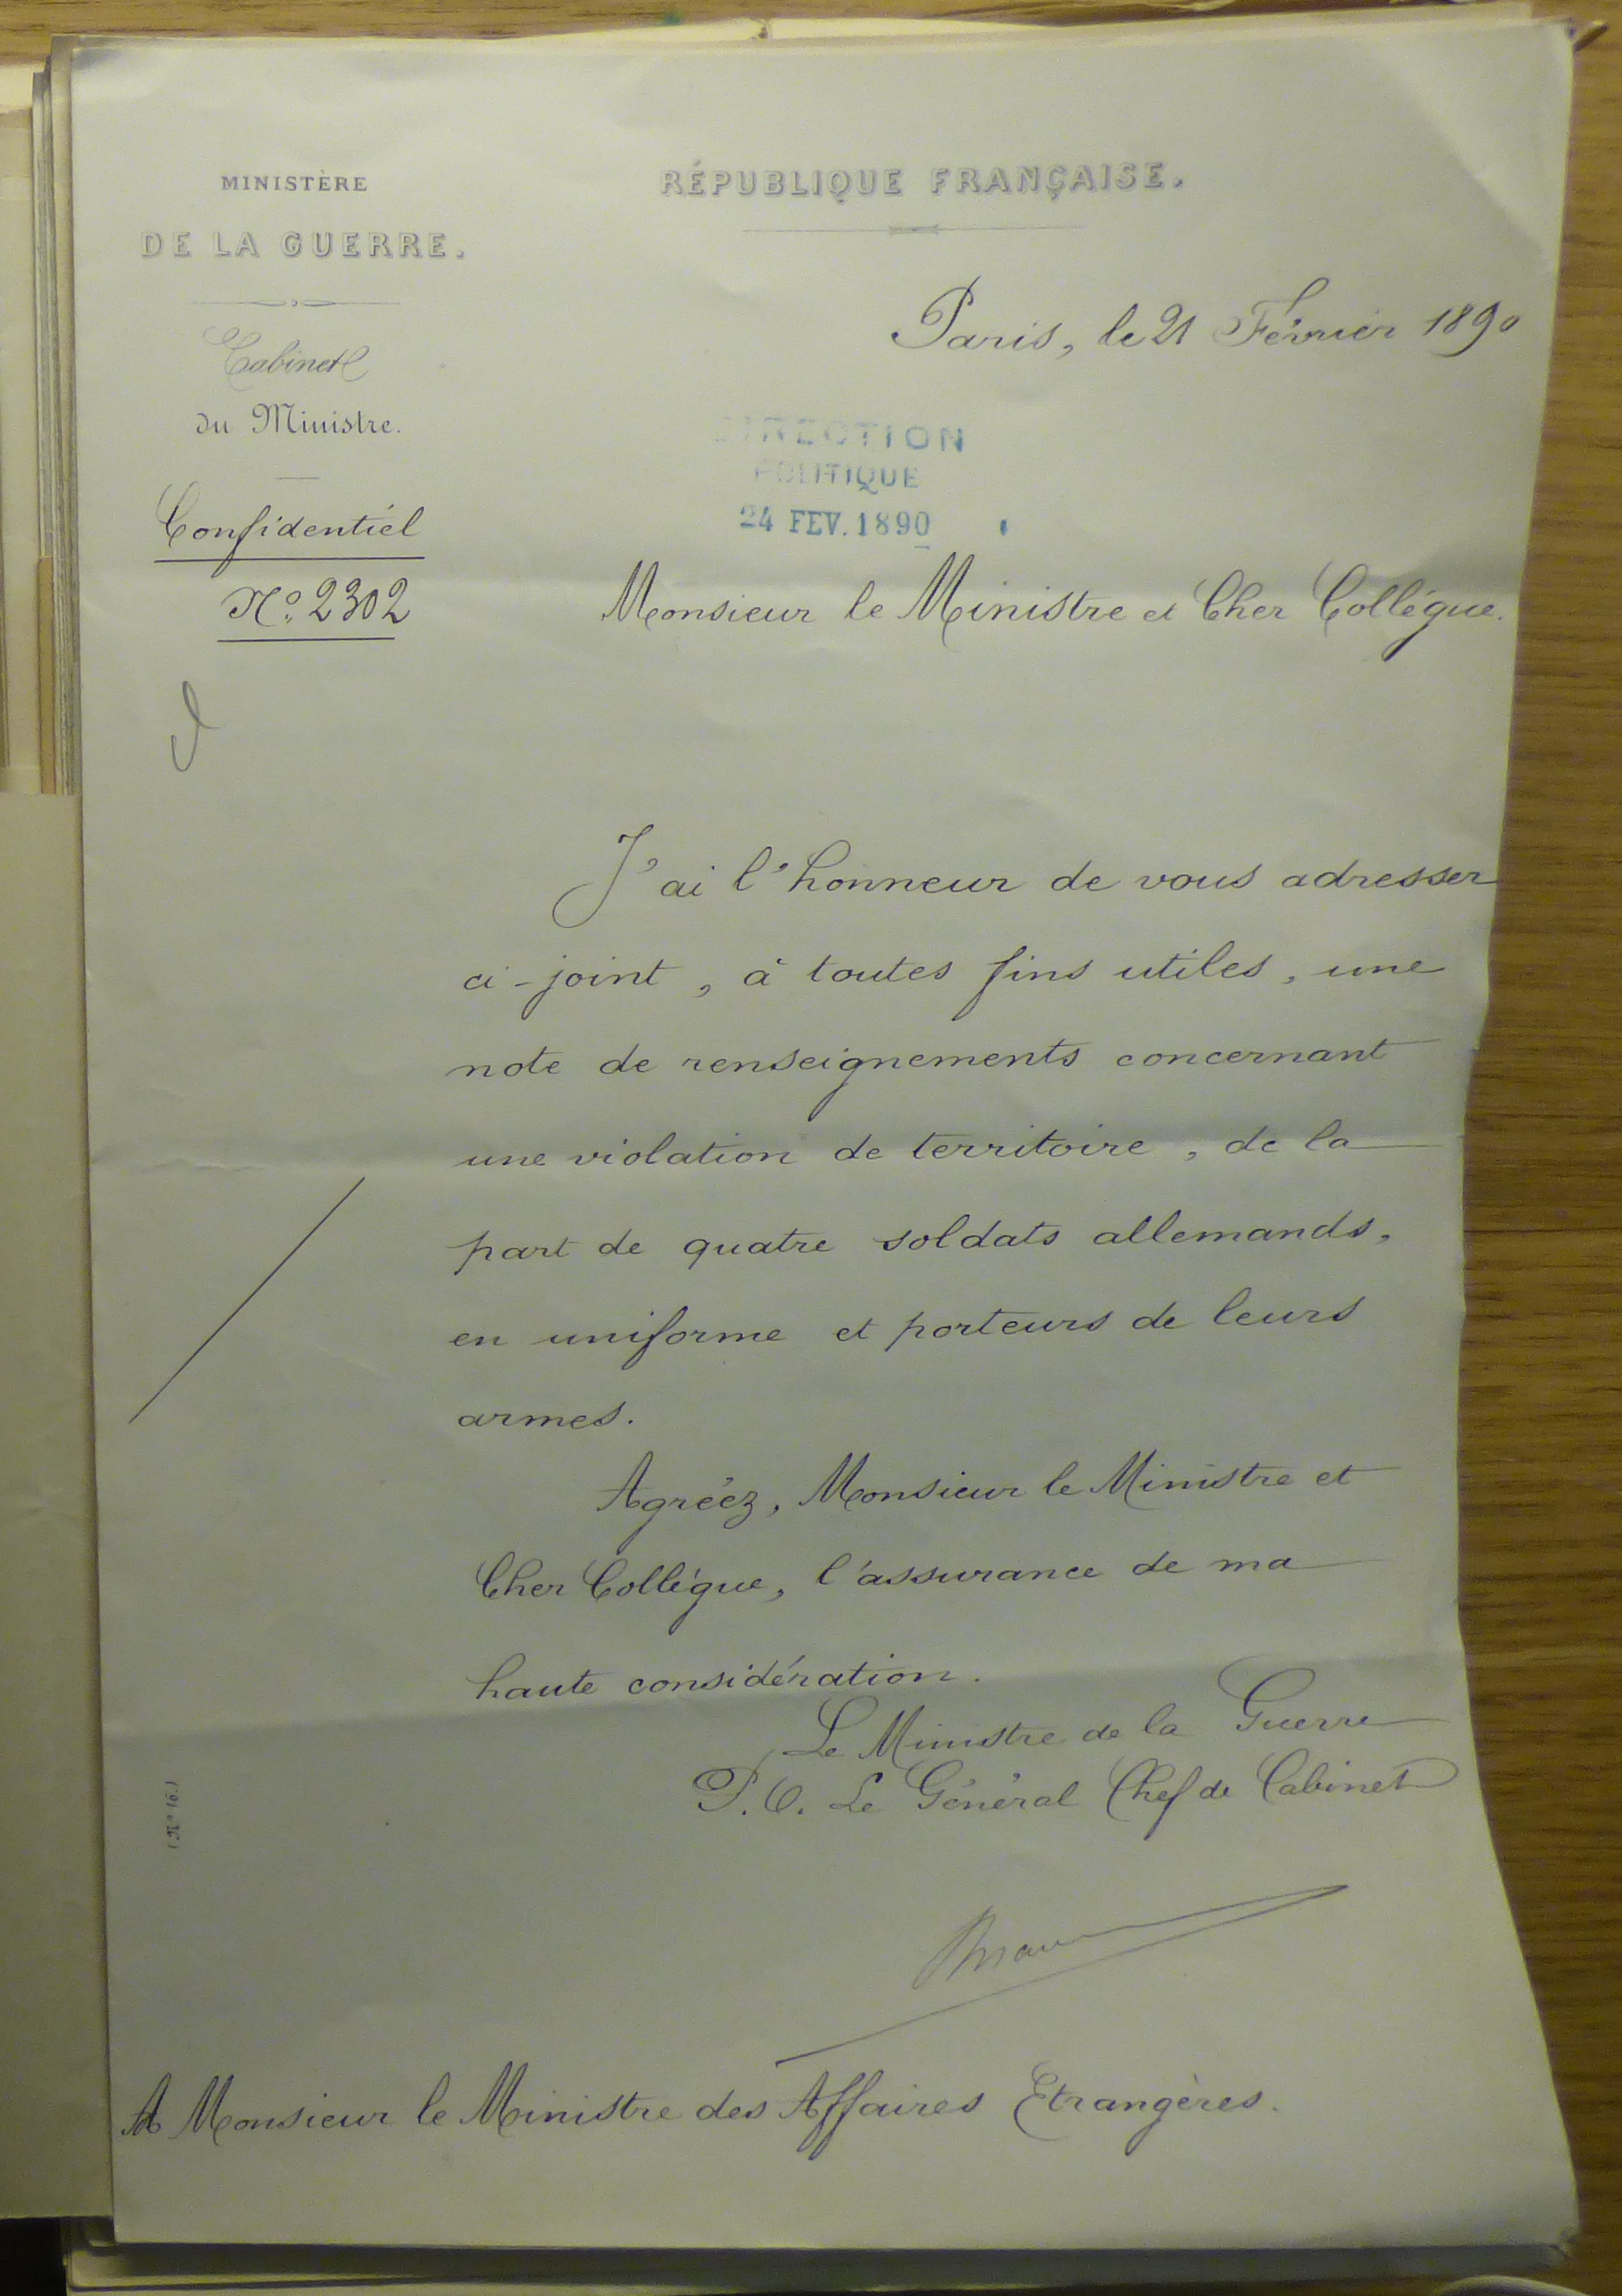 MINISTÈRE
DE LA GUERRE.
Cabinet
du Ministre.
Confidentiel
N° 2302
RÉPUBLIQUE FRANÇAISE.
Paris, le 21 Février 1890
DIRECTION
POLITIQUE
24 FEV. 1890
Monsieur le Ministre et Cher Collégue.
J'ai l'honneur de vous adresser
ci-joint, à toutes fins utiles, une
note de renseignements concernant
une violation de territoire, de la
part de quatre soldats allemands,
en uniforme et porteurs de leurs
armes.
Agréez, Monsieur le Ministre et
Cher Collégue, l'assurance de ma
haute considération.
Le Ministre de la Guerre
P.O. Le Général Chef de Cabinet
(N° 16.)
A Monsieur le Ministre des Affaires Etrangères.